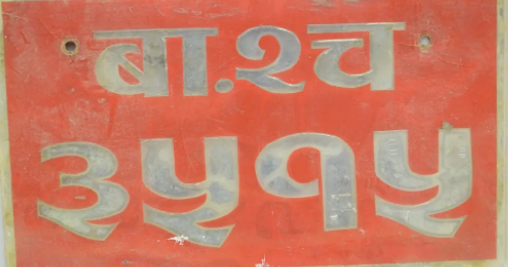 बा.२च
३५१५